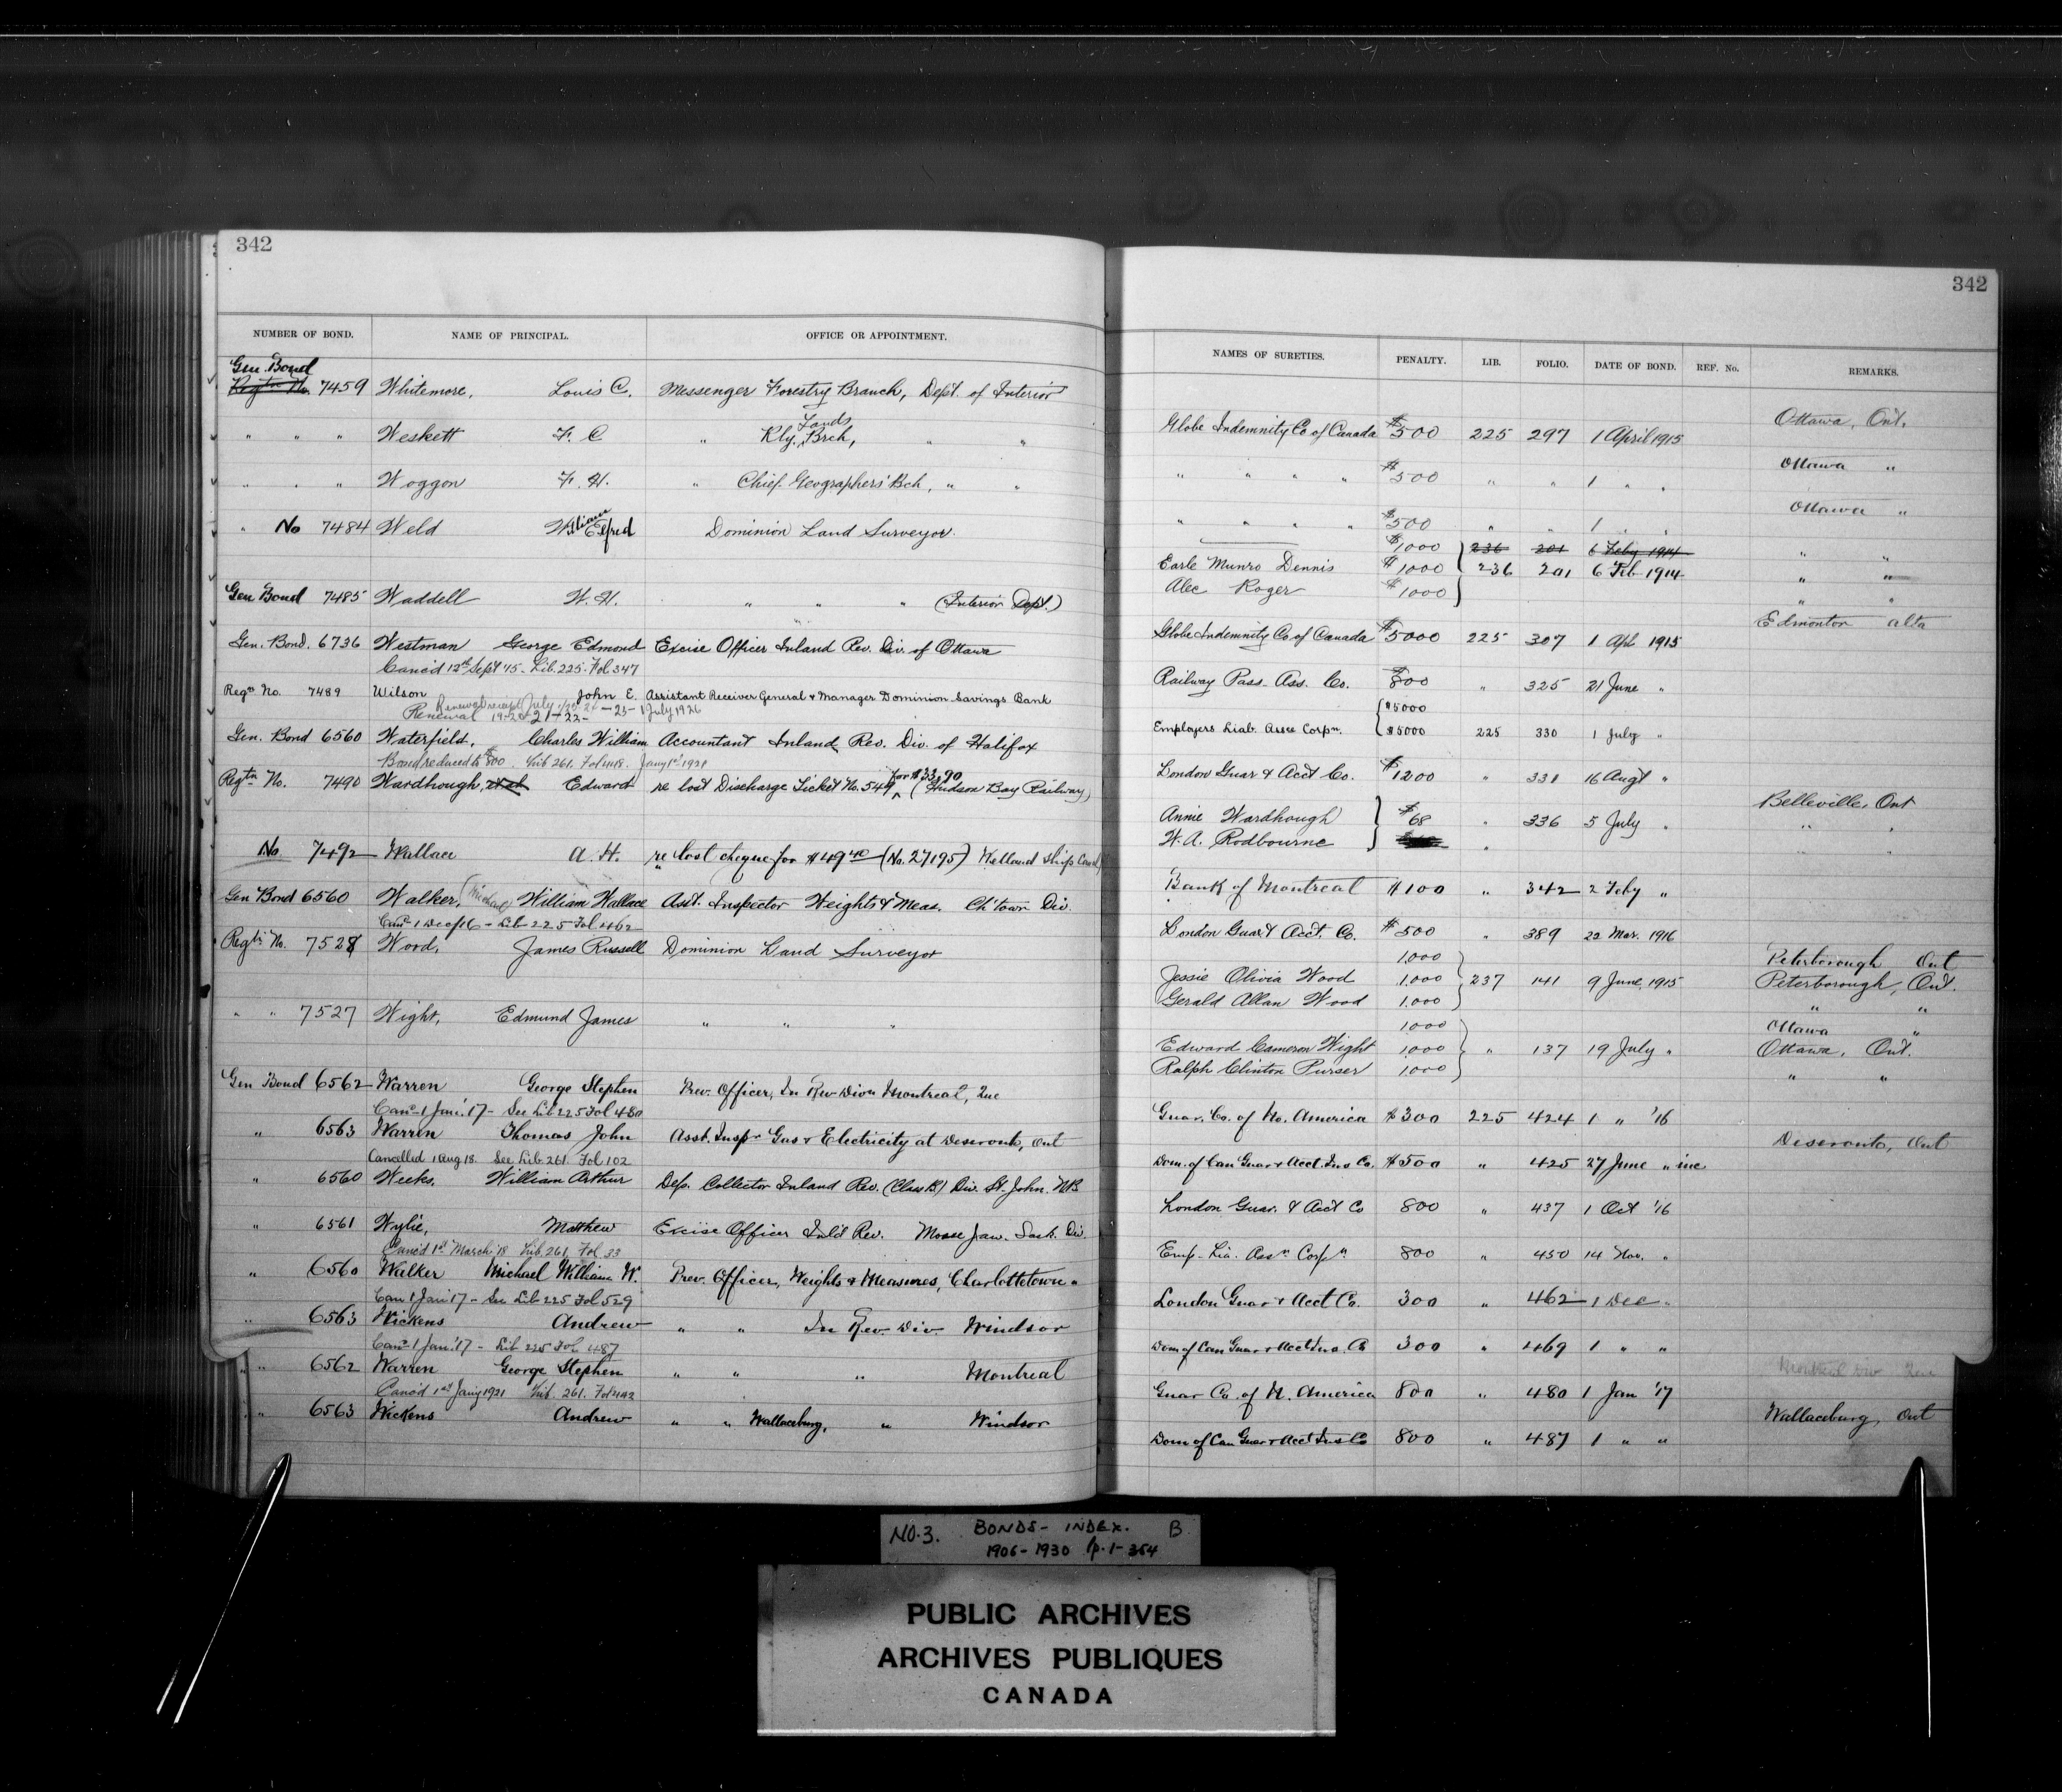 342
NUMBER OF BOND. NAME OF PRINCIPAL. OFFICE OR APPOINTMENT.
Gen. Bond
Regtn No. 7459 Whitemore, Louis C. Messenger Forestry Branch, Dept. of Interior
Lands
" " " Weskett F. C " Rly. Brch, " "
" " " Woggon F. H. " Chief Geographers' Bch, " "
" No 7484 Weld William Elfred Dominion Land Surveyor.
Gen Bond 7485 Waddell W. H. " " " (Interior Dept.)
Gen. Bond. 6736 Westman George Edmond Excise Officer Inland Rev. Div. of Ottawa
Canc'd 12th Sept '15 - Lib. 225 - Fol 347
Regn No. 7489 Wilson John E. Assistant Receiver General & Manager Dominion Savings Bank
Renewal receipt July
Renewal 19-20-21-22- -25- 1 July 1926
Gen. Bond 6560 Waterfield, Charles William Accountant Inland Rev. Div. of Halifax
Bond reduced to $800. Lib 261. Fol 418. Jany 1st 1921
for $33.90
Regtn No. 7490 Wardhough, Edward re lost Discharge Ticket No. 549 (Hudson Bay Railway)
No 7492 Wallace A. H. re lost cheque for $49.40 (No. 27195) Welland Ship Canal
Gen Bond 6560 Walker, (Michael) William Wallace Asst. Inspector Weights & Meas. Ch'town Div.
Canc 1 Dec/16 - Lib 225 Fol 462
Regtn No. 7528 Wood, James Russell Dominion Land Surveyor
" " 7527 Wight, Edmund James " " "
Gen Bond 6562 Warren George Stephen Prev. Officer, In Rev Divn Montreal, Que
Canc - 1 Jan'. 17 - See Lib 225 Fol 480
" 6563 Warren Thomas John Asst. Inspr Gas & Electricity at Deseronto, Ont
Cancelled 1 Aug 18. See Lib. 261. Fol. 102
" 6560 Weeks, William Arthur Dep. Collector Inland Rev. (Class B) Div. St. John. NB
" 6561 Wylie, Matthew Excise Officer Inl'd Rev. Moose Jaw. Sask. Div.
Canc'd 1st March '18 Lib. 261. Fol. 33
" 6560 Walker Michael William W. Prev. Officer, Weights & Measures, Charlottetown "
Can 1 Jan '17 - See Lib 225 Fol 529
" 6563 Wickens Andrew " " In Rev. Div. Windsor
Canc 1 Jan. '17 - Lib 225 Fol 487
" 6562 Warren George Stephen " " " Montreal
Canc'd 1st Jany 1921 Lib. 261. Fol 442
" 6563 Wickens Andrew " " Wallaceburg, " Windsor
342
NAMES OF SURETIES. PENALTY. LIB. FOLIO. DATE OF BOND. REF. No. REMARKS.
Globe Indemnity Co of Canada $500 225 297 1 April 1915 Ottawa, Ont.
" " " " $500 " " 1 " " Ottawa "
" " " " $500 " " 1 " " Ottawa "
$1000 236 201 6 Feby 1914 " "
Earle Munro Dennis $1000 236 201 6 Feb 1914 " "
Alec Roger $1000 " "
Globe Indemnity Co of Canada $5000 225 307 1 Apl 1915 Edmonton alta
Railway Pass. Ass. Co. $800 " 325 21 June "
$5000
Employers Liab. Assce Corpn. $5000 225 330 1 July "
London Guar & Acct Co. $1200 " 331 16 Augt "
Annie Wardhough $68 " 336 5 July " Belleville, Ont
W. A. Rodbourne " " "
Bank of Montreal $100 " 342 2 Feby "
London Guar & Acct. Co. $500 " 389 22 Mar. 1916
1,000 Peterborough Ont
Jessie Olivia Wood 1,000 237 141 9 June, 1915 Peterborough, Ont.
Gerald Allan Wood 1,000 " "
1000 Ottawa "
Edward Cameron Wight 1,000 " 137 19 July " Ottawa, Ont.
Ralph Clinton Purser 1,000 " "
Guar. Co. of No. America $300 225 424 1 " '16
Dom. of Can Guar & Acct. Ins Co. $500 " 425 27 June " inc Deseronto, Ont
London Guar. & Acct Co 800 " 437 1 Oct '16
Emp. Lia. Assn Corpn 800 " 450 14 Nov. "
London Guar & Acct Co. 300 " 462 1 Dec "
Dom of Can Guar & Acct Ins. Co 300 " 469 1 " "
Guar Co. of N. America 800 " 480 1 Jan '17 Montreal Div Que
Dom of Can Guar & Acct Ins Co 800 " 487 1 " " Wallaceburg, Ont
NO. 3. BONDS - INDEX. B
1906 - 1930 p. 1 - 354
PUBLIC ARCHIVES
ARCHIVES PUBLIQUES
CANADA